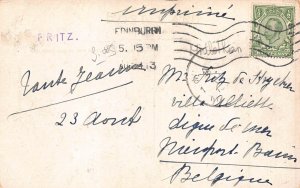 Imprimé
FRITZ.
EDINBURGH
5. 15 PM
Tante Jeanne
23 Aout
Mr Fritz de Hycker
villa
digue de mer
Nieuport-Bains
Belgique